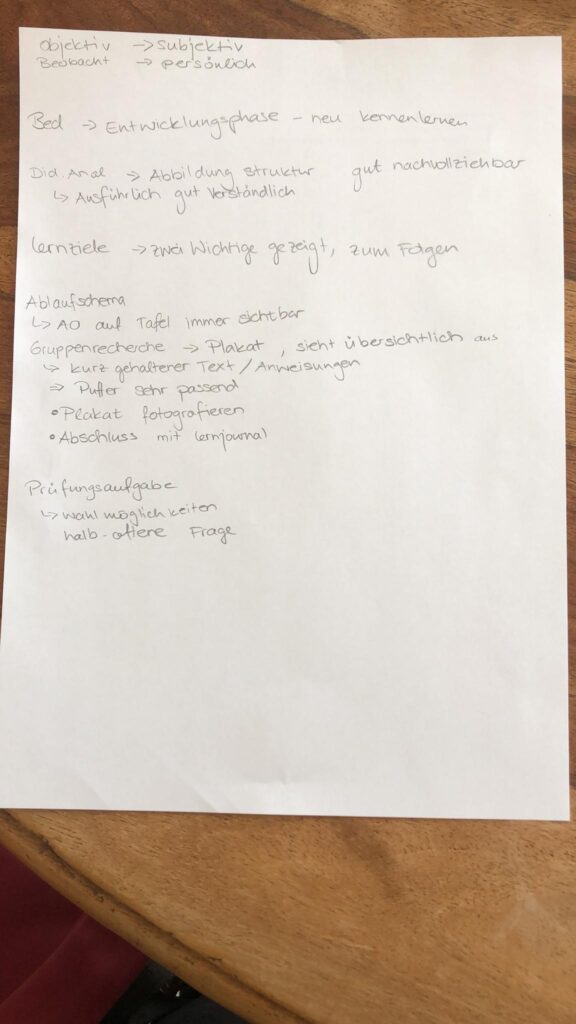 Objektiv → subjektiv
Beobacht → persönlich
Bed → Entwicklungsphase - neu kennenlernen
Did. Anal → Abbildung struktur gut nachvollziehbar
↳ Ausführlich gut verständlich
Lernziele → zwei Wichtige gezeigt, zum Folgen
Ablaufschema
↳ AO auf Tafel immer sichtbar
Gruppenrecherche → Plakat, sieht übersichtlich aus
↳ kurz gehaltener Text / Anweisungen
⇒ Puffer sehr passend
• Plakat fotografieren
• Abschluss mit Lernjournal
Prüfungsaufgabe
↳ Wahlmöglichkeiten
halb-offene Frage